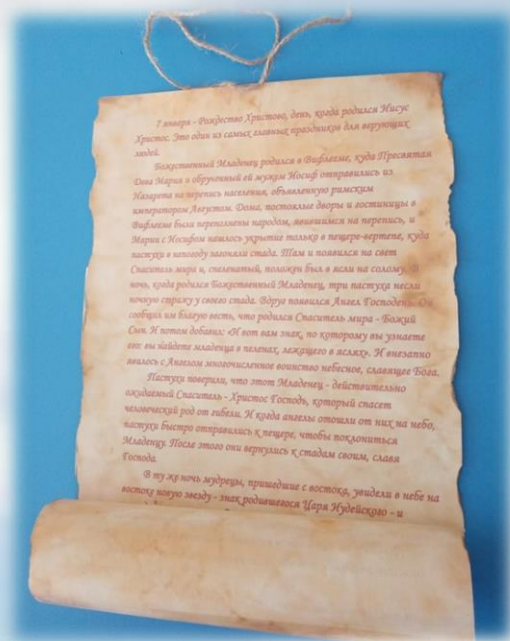 7 января - Рождество Христово, день, когда родился Иисус
Христос. Это один из самых главных праздников для верующих
людей.
Божественный Младенец родился в Вифлееме, куда Пресвятая
Дева Мария и обрученный ей мужем Иосиф отправились из
Назарета на перепись населения, объявленную римским
императором Августом. Дома, постоялые дворы и гостиницы в
Вифлееме были переполнены народом, явившимся на перепись, и
Мария с Иосифом нашлось укрытие только в пещере-вертепе, куда
пастухи в непогоду загоняли стада. Там и появился на свет
Спаситель мира и, спеленатый, положен был в ясли на солому. В
ночь, когда родился Божественный Младенец, три пастуха несли
ночную стражу у своего стада. Вдруг появился Ангел Господень. Он
сообщил им благую весть, что родился Спаситель мира - Божий
Сын. И потом добавил: «И вот вам знак, по которому вы узнаете
его: вы найдете младенца в пеленах, лежащего в яслях». И внезапно
явилось с Ангелом многочисленное воинство небесное, славящее Бога.
Пастухи поверили, что этот Младенец - действительно
ожидаемый Спаситель - Христос Господь, который спасет
человеческий род от гибели. И когда ангелы отошли от них на небо,
пастухи быстро отправились к пещере, чтобы поклониться
Младенцу. После этого они вернулись к стадам своим, славя
Господа.
В ту же ночь мудрецы, пришедшие с востока, увидели в небе на
востоке новую звезду - знак родившегося Царя Иудейского - и